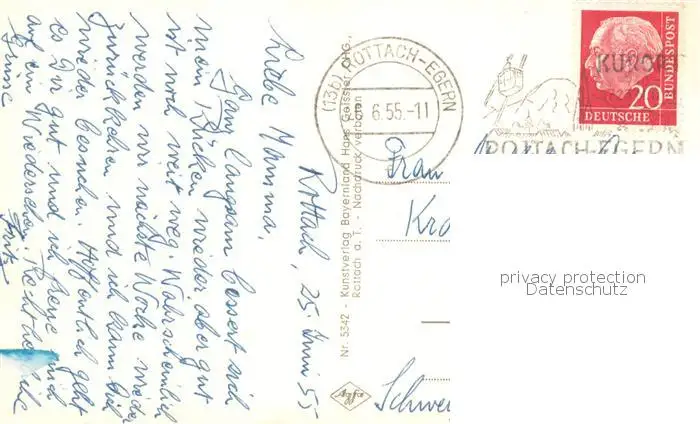 Rottach, 25 Juni 55
Liebe Mamma,
Ganz langsam bessert sich
mein Rücken wieder aber gut
ist noch weit weg. Wahrscheinlich
werden wir nächste Woche wieder
zurückkehren und ich kann Dich
wieder besuchen. Hoffentlich geht
es Dir gut und ich freue mich
auf ein Wiedersehen. Recht herzliche
Grüsse
Fritz
Nr. 5342 - Kunstverlag Bayernland Hans Geissler OHG.,
Rottach a. T. - Nachdruck verboten
Agfa
(13b) ROTTACH-EGERN
6.55.-11
KURORT
ROTTACH-EGERN
20
DEUTSCHE
BUNDESPOST
Frau
Schwe
privacy protection
Datenschutz